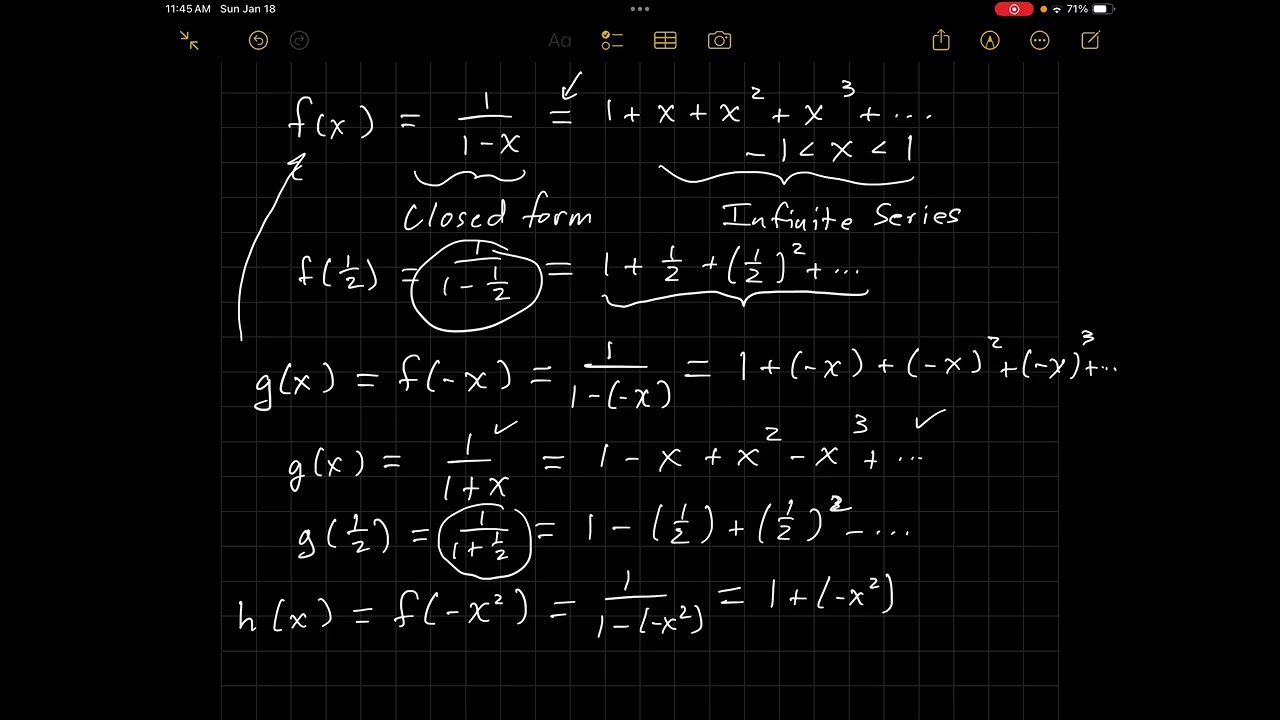 11:45 AM Sun Jan 18
71%
Aa
f(x) = 1/(1-x) = 1 + x + x² + x³ + ...
-1 < x < 1
Closed form Infinite Series
f(1/2) = 1/(1 - 1/2) = 1 + 1/2 + (1/2)² + ...
g(x) = f(-x) = 1/(1-(-x)) = 1 + (-x) + (-x)² + (-x)³ + ...
g(x) = 1/(1+x) = 1 - x + x² - x³ + ...
g(1/2) = 1/(1 + 1/2) = 1 - (1/2) + (1/2)² - ...
h(x) = f(-x²) = 1/(1-(-x²)) = 1 + (-x²)